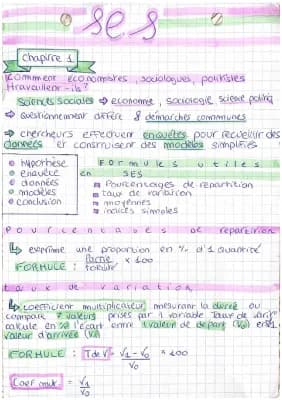 ses
Chapitre 1
Comment économistes, sociologues, politistes
travaillent-ils?
Sciences sociales → economie, sociologie, science politiq
→ Questionnement différe & démarches communes
→ chercheurs effectuent enquêtes pour recueillir des
données et construisent des modèles simplifiés
• hypothèse
• enquête
• données
• modèles
• conclusion
Formules utiles
en SES
Pourcentages de repartition
taux de variation
moyennes
indices simples
Pourcentages de repartition
↳ exprime une proportion en % d'1 quantité
FORMULE : Partie / totalité x 100
taux de variation
↳ coefficient multiplicateur, mesurant la
compare 2 valeurs prises par 1 variable Taux de varia°
calcule en % l'écart entre 1 valeur de départ (V0) et 1
valeur d'arrivée (V1)
FORMULE : TdeV = V1 - V0 / V0 x 100
Coef mult = V1 / V0